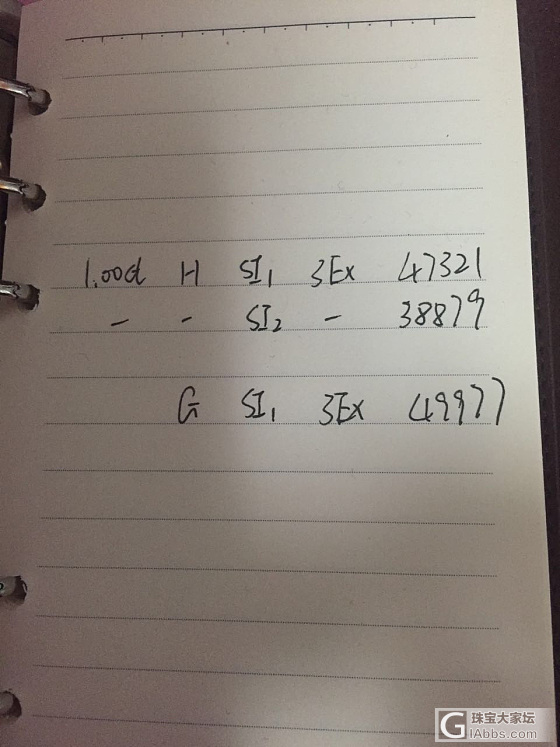 1.00ct H SI₁ 3Ex 47321
- - SI₂ - 38879
G SI₁ 3Ex 49977
G 珠宝大家坛
GIAbbs.com